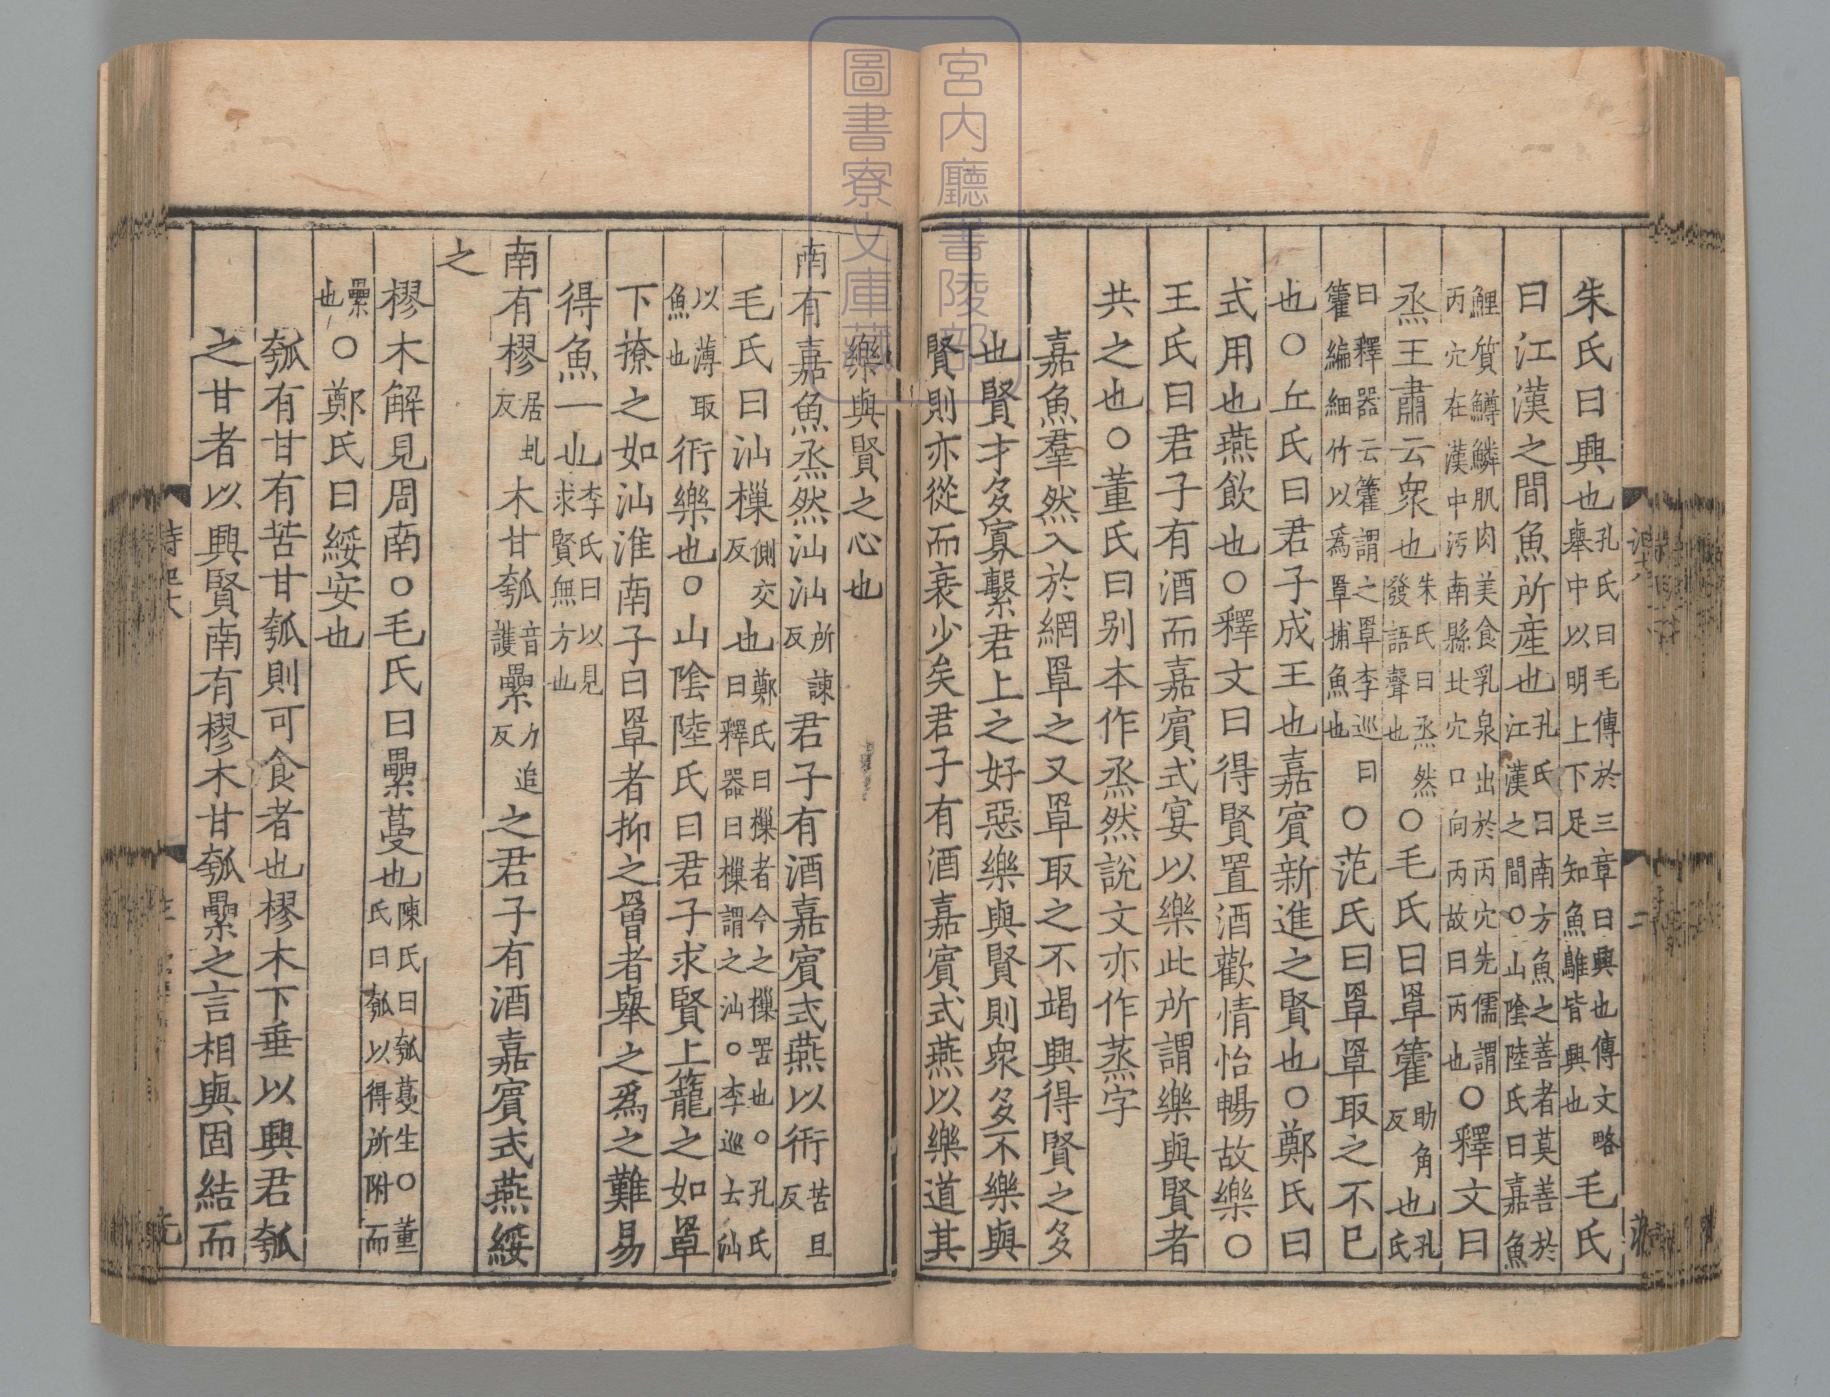 朱氏曰興也孔氏曰毛傳於三章曰興也傳文略舉中以明上下足知魚鵻皆興也毛氏
曰江漢之間魚所産也孔氏曰南方魚之善者莫善於江漢之間○山陰陸氏曰嘉魚
鯉質鱒鱗肌肉美食乳泉出於丙穴先儒謂丙穴在漢中沔南縣北穴口向丙故曰丙也○釋文曰
烝王肅云衆也朱氏曰烝然發語聲也○毛氏曰罩籗助角反也孔氏
曰釋器云籗謂之罩李巡曰籗編細竹以爲罩捕魚也○范氏曰罩罩取之不已
也○丘氏曰君子成王也嘉賓新進之賢也○鄭氏曰
式用也燕飲也○釋文曰得賢置酒歡情怡暢故樂○
王氏曰君子有酒而嘉賓式宴以樂此所謂樂與賢者
共之也○董氏曰别本作烝然說文亦作蒸字
嘉魚羣然入於網罩之又罩取之不竭興得賢之多
也賢才多寡繫君上之好惡樂與賢則衆多不樂與
賢則亦從而衰少矣君子有酒嘉賓式燕以樂道其
樂與賢之心也
南有嘉魚烝然汕汕所諫反君子有酒嘉賓式燕以衎苦旦反
毛氏曰汕樔側交反也鄭氏曰樔者今之樔罟也○孔氏曰釋器曰樔謂之汕○李巡云汕
以薄取魚也衎樂也○山陰陸氏曰君子求賢上籠之如罩
下撩之如汕淮南子曰罩者抑之罾者舉之爲之難易
得魚一也李氏曰以見求賢無方也
南有樛居虬反木甘瓠音護纍力追反之君子有酒嘉賓式燕綏
之
樛木解見周南○毛氏曰纍蔓也陳氏曰瓠蔓生○董氏曰瓠以得所附而
纍也○鄭氏曰綏安也
瓠有甘有苦甘瓠則可食者也樛木下垂以興君瓠
之甘者以興賢南有樛木甘瓠纍之言相與固結而
宮内廳書陵部
圖書寮文庫藏